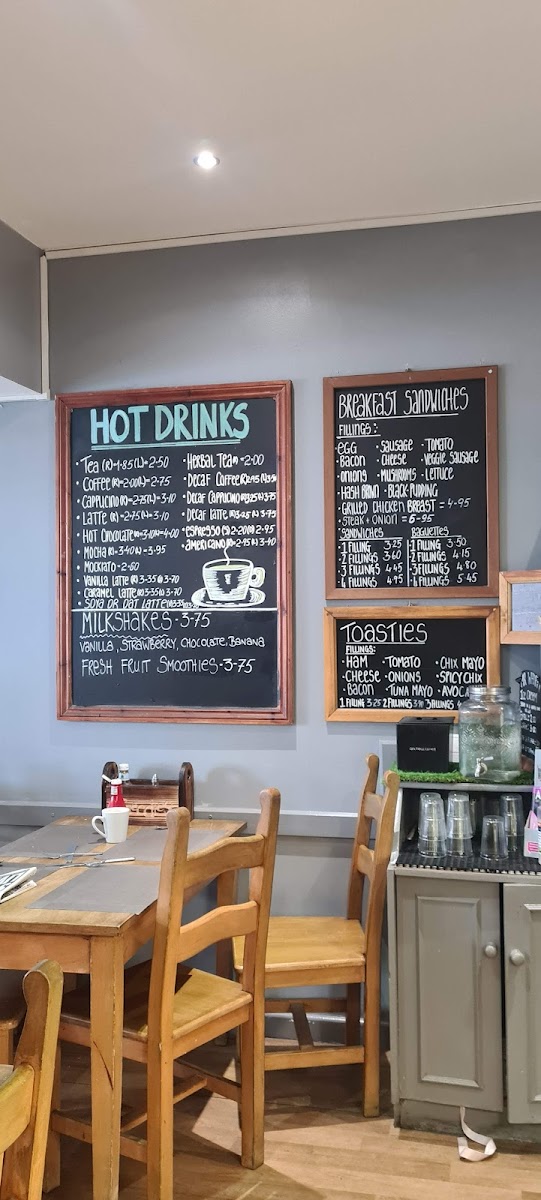 HOT DRINKS
· Tea (R)-1.85 (L)-2.50
· Coffee (R)-2.00 (L)-2.75
· Cappuccino (R)-2.75 (L)-3.10
· Latte (R)-2.75 (L)-3.10
· Hot Chocolate (R)-3.10 (L)-4.00
· Mocha (R)-3.40 (L)-3.95
Mockiato - 2.60
Vanilla Latte (R) 3.35 (L) 3.70
Caramel Latte (R) 3.35 (L) 3.70
Soya or Oat Latte
· Herbal Tea 2.00
· Decaf Coffee
· Decaf Cappuccino
· Decaf Latte 3.75
· Espresso (S) 2.20 (D) 2.95
· Americano (R)-2.75 (L) 3.10
MILKSHAKES - 3.75
VANILLA, STRAWBERRY, CHOCOLATE, BANANA
FRESH FRUIT SMOOTHIES - 3.75
BREAKFAST SANDWICHES
FILLINGS:
· EGG · SAUSAGE · TOMATO
· BACON · CHEESE · VEGGIE SAUSAGE
· ONIONS · MUSHROOMS · LETTUCE
· HASH BROWN · BLACK PUDDING
· GRILLED CHICKEN BREAST = 4.95
· STEAK + ONION = 6.95
SANDWICHES BAGUETTES
1 FILLING 3.25 1 FILLING 3.50
2 FILLINGS 3.60 2 FILLINGS 4.15
3 FILLINGS 4.45 3 FILLINGS 4.80
4 FILLINGS 4.95 4 FILLINGS 5.45
TOASTIES
FILLINGS:
· HAM · TOMATO · CHIX MAYO
· CHEESE · ONIONS · SPICY CHIX
· BACON · TUNA MAYO · AVOCA
1 FILLING 3.25 2 FILLINGS 3.90 3 FILLINGS